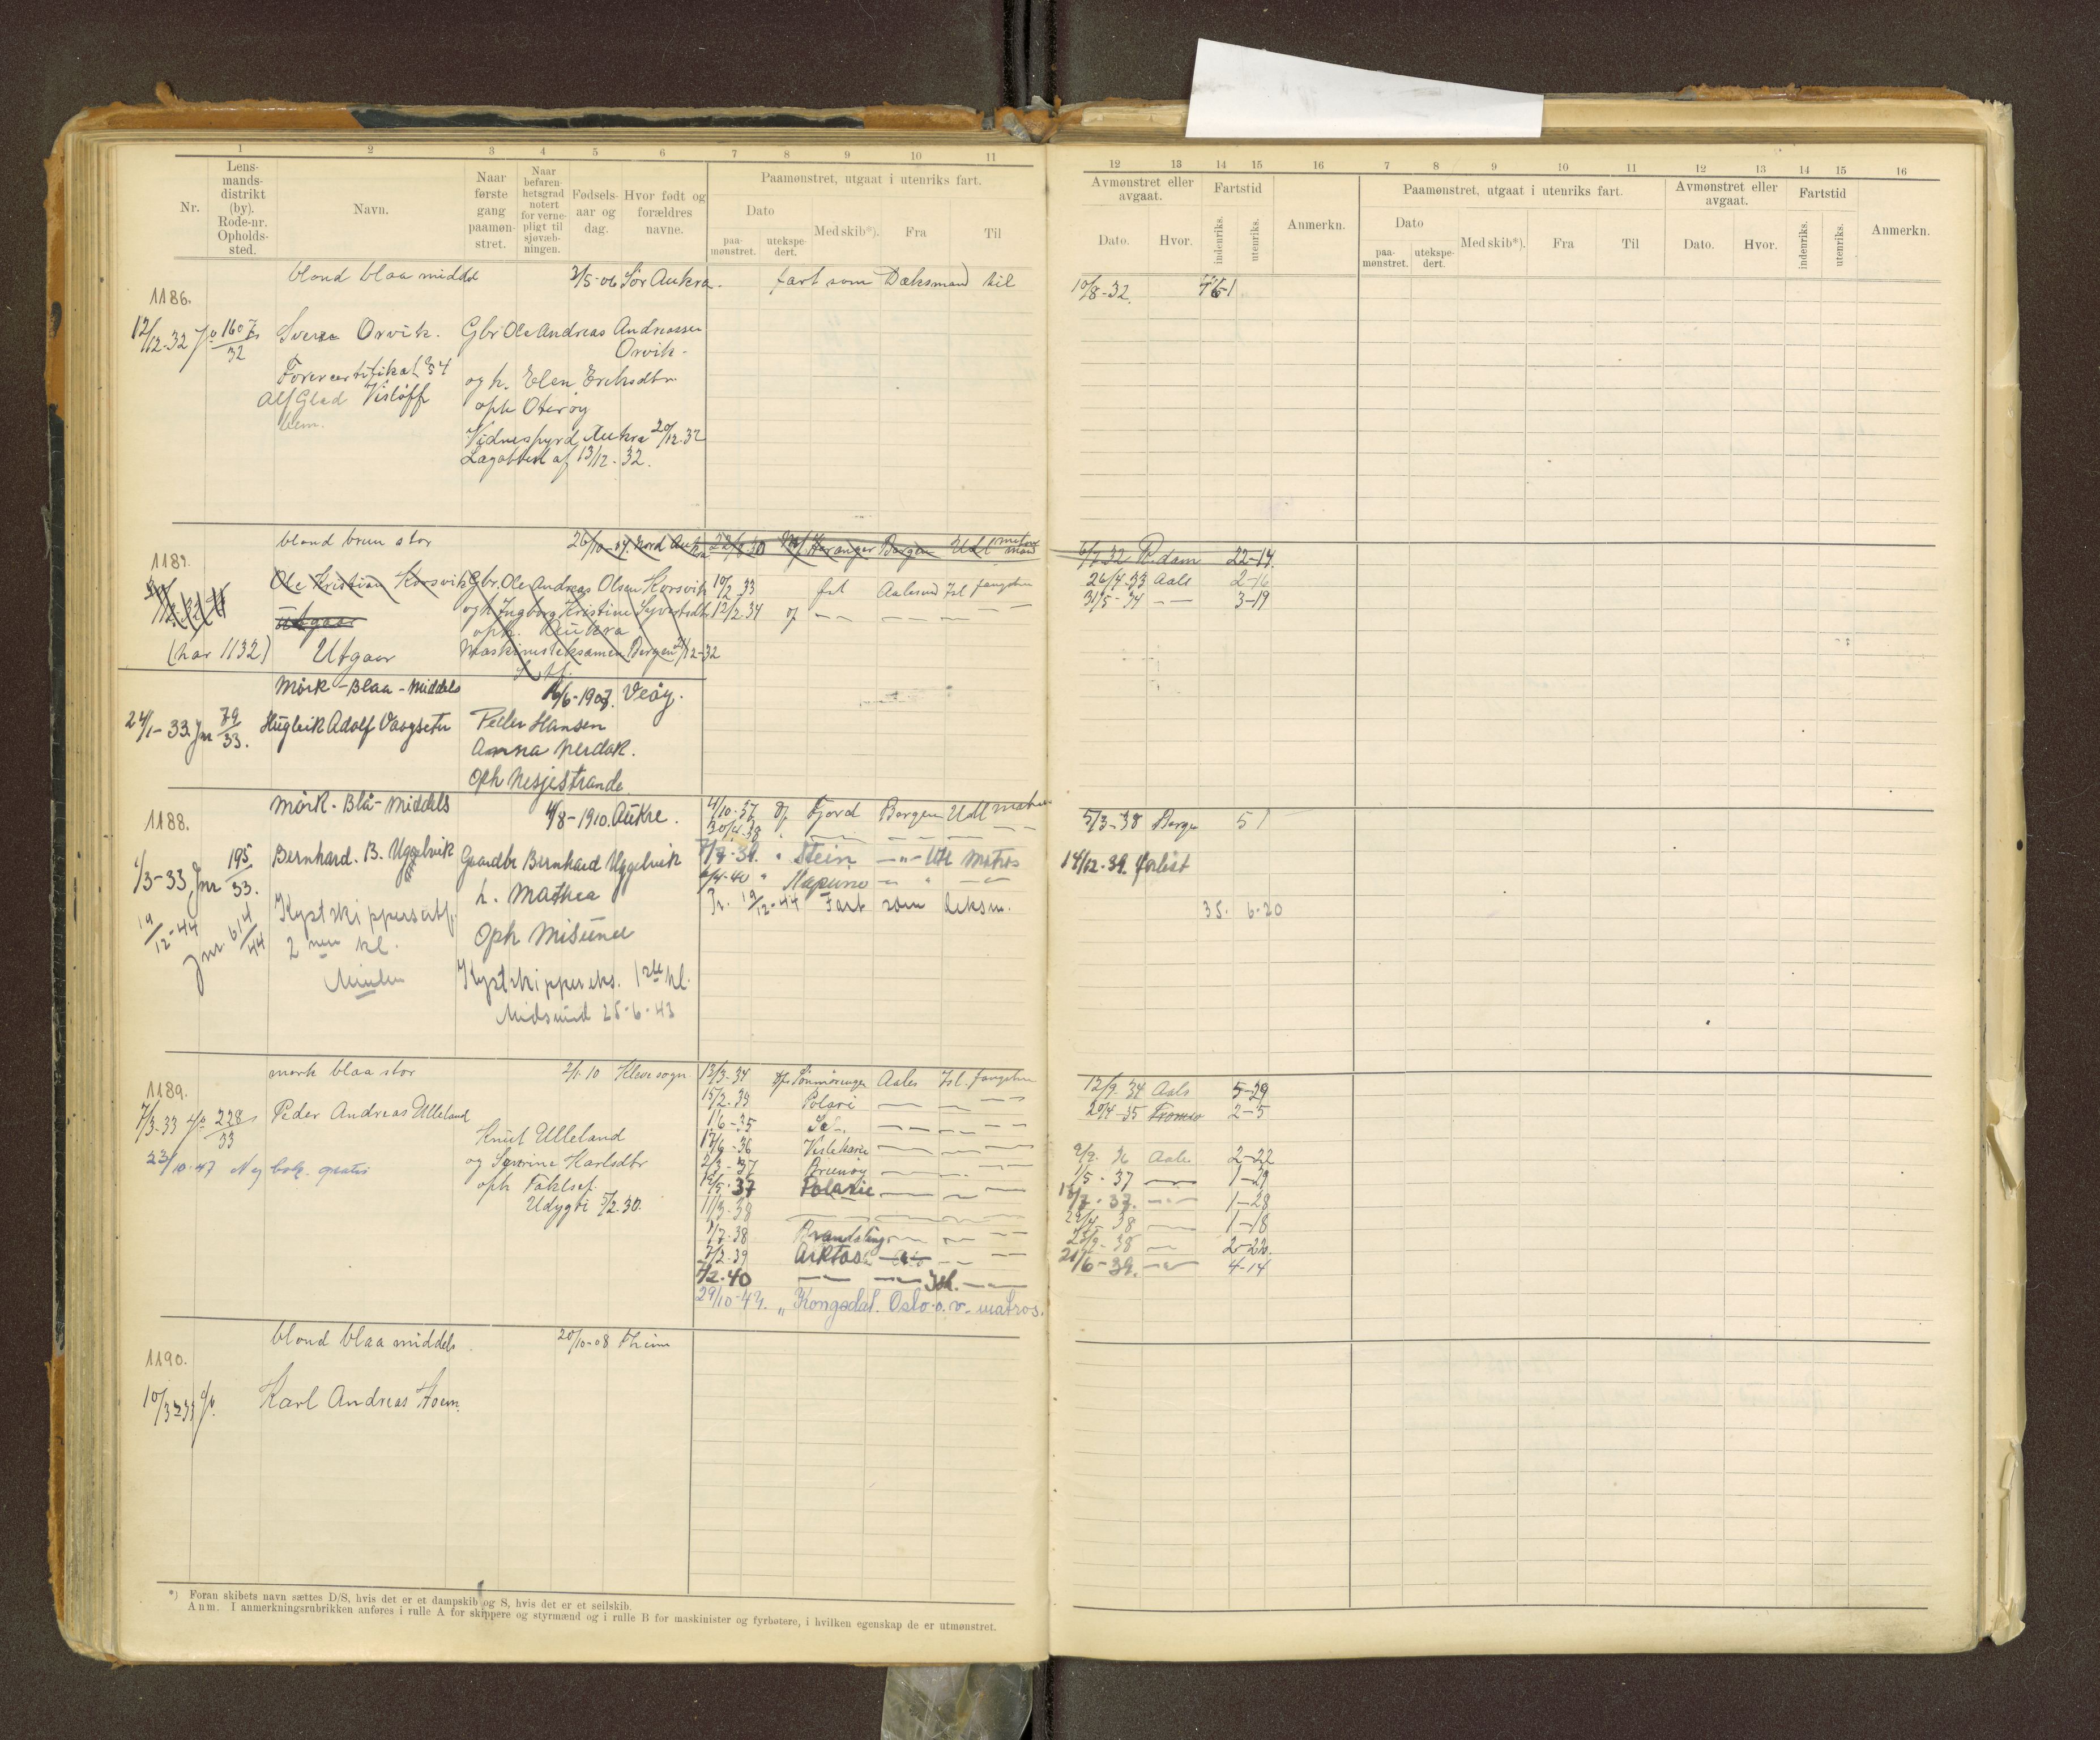 1 2 3 4 5 6 7 8 9 10 11
Nr.
Lens-
mands-
distrikt
(by).
Rode-nr.
Opholds-
sted.
Navn.
Naar
første
gang
paamøn-
stret.
Naar
befaren-
hetsgrad
notert
for verne-
pligt til
sjøvæb-
ningen.
Fødsels-
aar og
dag.
Hvor født og
forældres
navne.
Paamønstret, utgaat i utenriks fart.
Dato
paa-
mønstret.
utekspe-
dert.
Med skib*).
Fra
Til
blond blaa middel 3/5-06 Sør Aukra. fart som Dæksmand til
1186.
12/12-32 1607/32 Sverre Orvik. Gbr Ole Andreas Andreassen
Orvik.
og h. Elen Eriksdtr.
oph Oterøy
Alf Glad Visløff
Aukra 20/12-32
af 13/12-32.
blond brun stor 26/10-07. Nord Aukra 22/8 30 M/ Haranger Bergen Udl
1187.
Ole Kristian Korsvik Gbr. Ole Andreas Olsen Korsvik 10/2 33 Aalesund Isl fangstm
og h Ingborg Kristine 12/2.34
Utgaar
oph. Aukra
(har 1132) Utgaar Maskinisteksamen Bergen 21/12-32
Mörk - Blaa - Middels 16/6-1907. Veøy.
24/1-33. Jnr 79/33. Hugleik Adolf Vaagseter Peder Hansen
Anna Nerdak.
Oph Nesjestranda.
Mörk - Blå - Middels 4/8-1910. Aukre. 4/10-37 Fjord Bergen Udl matros
1188. 30/4.38
Bernhard. B. Uggelvik Gaardbr Bernhard Uggelvik Stein Utl Matros
1/3-33 Jnr 195/33. h. Mathea 6/4-40
19/12-44 Jnr. 614/44 Kystskippersertf. Oph Misund 19/12-44 Fart som deksm.
2 nen kl.
Kystskippereks. 1ste kl.
Midsund 25-6-43
mørk blaa stor 2/1.10 Klevesogn 13/3-34 Sönmöringen Aales Isl. fangstm
1189. 15/2.35 Polaric
7/3-33 228/33 Peder Andreas Ulleland 1/6-35
Knut Ulleland 17/6-36 Veslekarie
23/10-47 Ny bok. gratis og Severine Karlsdtr 2/3-37 Brunøy
oph 19/5.37 Polaric
Udygti 5/2.30. 11/3-38
1/7-38 Brandsling
7/3.39 Arktos
7/2.40 Ish.
29/10-47. " Kongsdal. Oslo o.v. matros.
blond blaa middels 20/10-08 Theim
1190.
10/3-33 Karl Andreas Hoem.
*) Foran skibets navn sættes D/S, hvis det er et dampskib og S, hvis det er et seilskib.
Anm. I anmerkningsrubrikken anføres i rulle A for skippere og styrmænd og i rulle B for maskinister og fyrbøtere, i hvilken egenskap de er utmønstret.
12 13 14 15 16 7 8 9 10 11 12 13 14 15 16
Avmønstret eller
avgaat.
Dato.
Hvor.
Fartstid
indenriks.
utenriks.
Anmerkn.
Paamønstret, utgaat i utenriks fart.
Dato
paa-
mønstret.
utekspe-
dert.
Med skib*).
Fra
Til
Avmønstret eller
avgaat.
Dato.
Hvor.
Fartstid
indenriks.
utenriks.
Anmerkn.
10/8-32.
6/7 32 R.dam 22-14.
26/4.33 Aale 2-16
31/5-34 3-19
5/3-38 Bergen 5 1
14/12-39. forlist
35. 6-20
12/9.34 Aals 5-29
20/4-35 Tromsø 2-5
Aale 2-22
1/5.37 1-29
18/7.37. 1-28
29/4.38 1-18
23/9-38 2-22.
21/6-39. 4-14